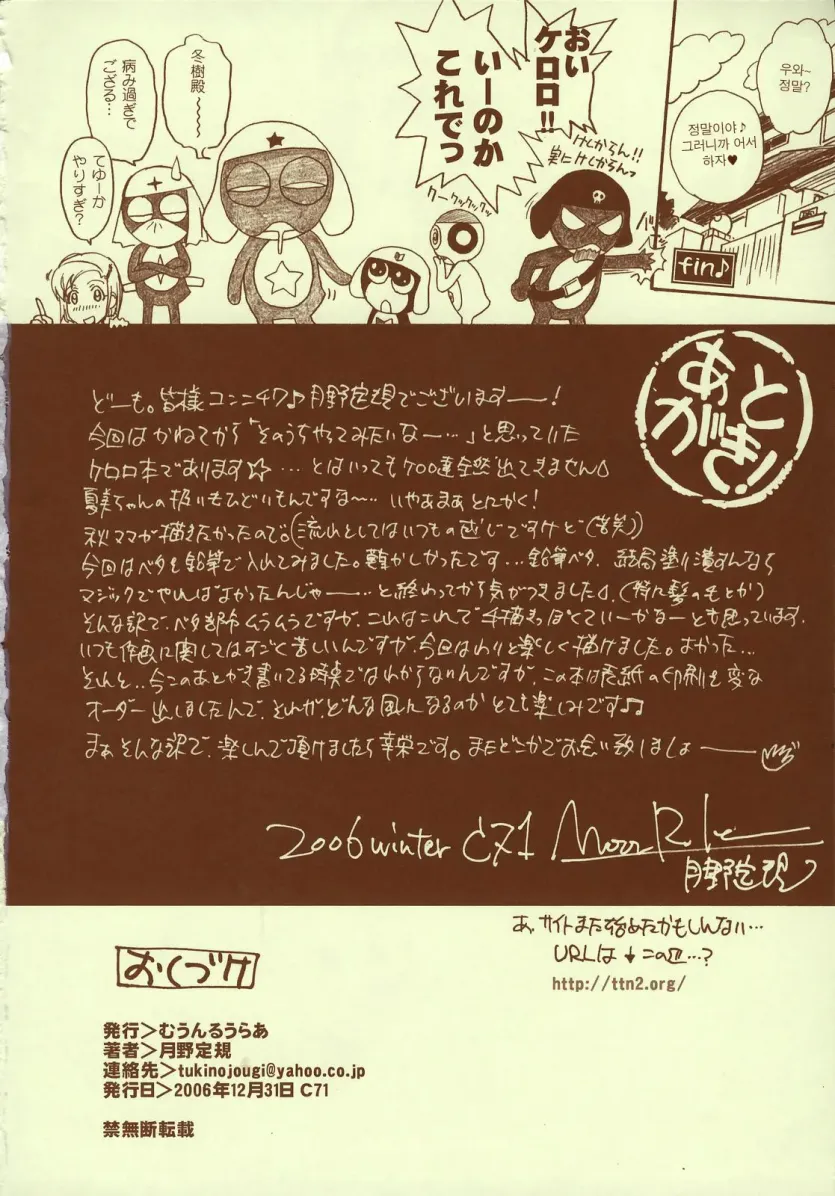 우와~
정말?
정말이야♪
그러니까 어서
하자♥
fin♪
おい
ケロロ!!
いーのか
これでっ
けしからん!!
実にけしからんっ
クークックックッ
冬樹殿
〜〜〜
病み過ぎで
ござる…
てゆーか
やりすぎ?
あとがき!
どーも。皆様コンニチワ♪月野定規でございますー!
今回はかねてから「そのうちやってみたいなー…」と思っていた
ケロロ本であります☆…とはいってもケロロ達全然出てきません♪
夏美ちゃんの扱いもひどいもんですな〜…いやあまあとにかく!
秋ママが描きたかったので。(流れとしてはいつもの感じですけど(苦笑))
今回はベタを鉛筆で入れてみました。難かしかったです…鉛筆ベタ、結局塗り潰すんなら
マジックでやればよかったんじゃー…と終わってから気がつきました♪。(特に髪の毛とか)
そんな訳で、ベタ部分ムラムラですが、これはこれで手描きっぽくていーかなーとも思っています。
いつも作画に関してはすごく苦しいんですが、今回はわりと楽しく描けました。よかった…
それと…今このあとがき書いてる時点ではわからないんですが、この本は表紙の印刷を変な
オーダー出しましたんで、それが、どんな風になるのかとても楽しみです♫
まぁそんな訳で、楽しんで頂けましたら幸栄です。またどこかでお会い致しましょー
2006 winter C71
月野定規
あ、サイトまた始めたかもしんない…
URLは↓この辺…?
http://ttn2.org/
おくづけ
発行>むうんるうらあ
著者>月野定規
連絡先>tukinojougi@yahoo.co.jp
発行日>2006年12月31日 C71
禁無断転載